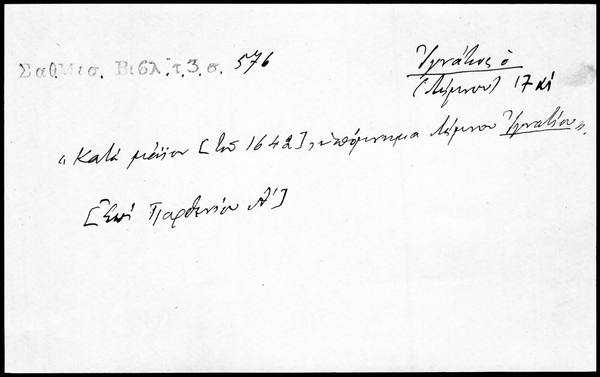 Σαθ. Μεσ. Βιβλ. τ. 3. σ. 576
Ἰγνάτιος ὁ
(Λήμνου) 17 αἰ
"Κατὰ μάϊον [τοῦ 1642], ὑπόμνημα Λήμνου Ἰγνατίου".
[Ἐπὶ Παρθενίου Α']